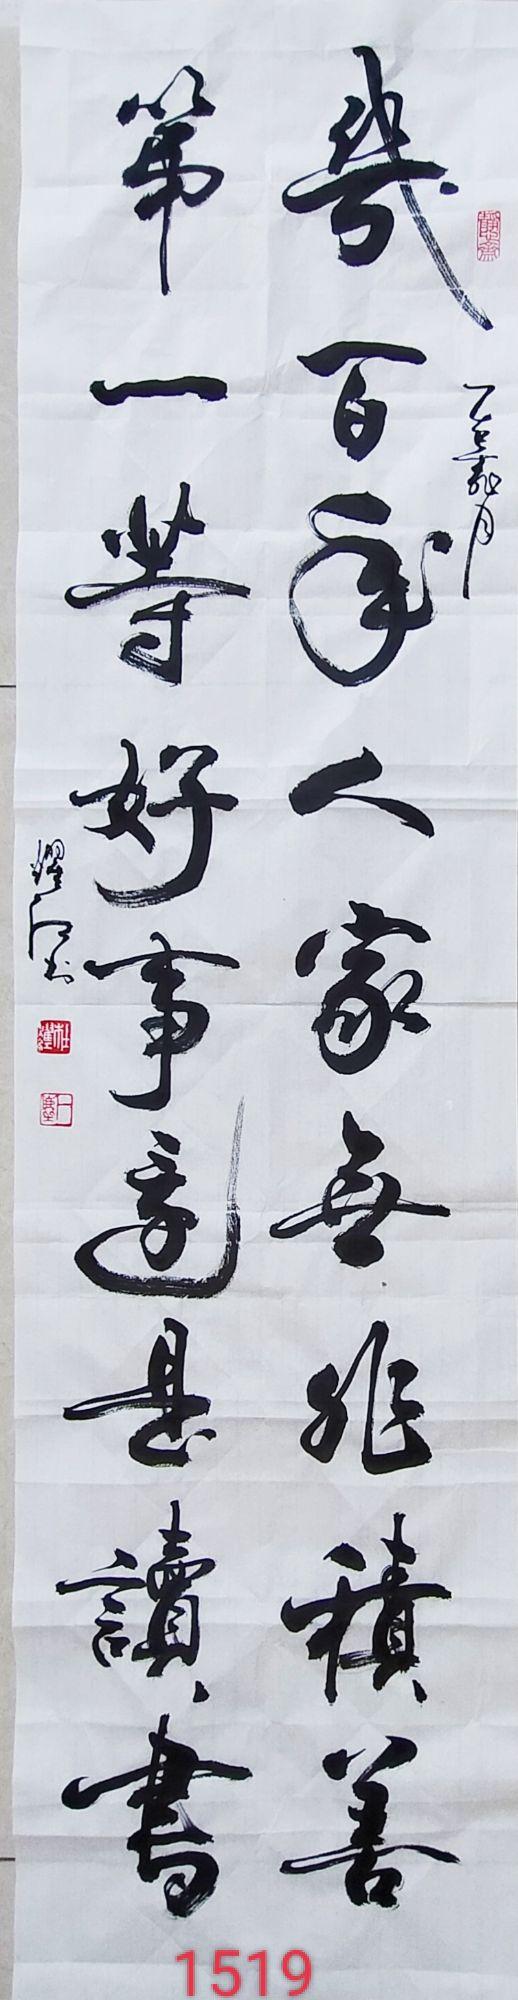 乙巳月
幾百年人家無非積善
第一等好事還是讀書
耀江书
1519